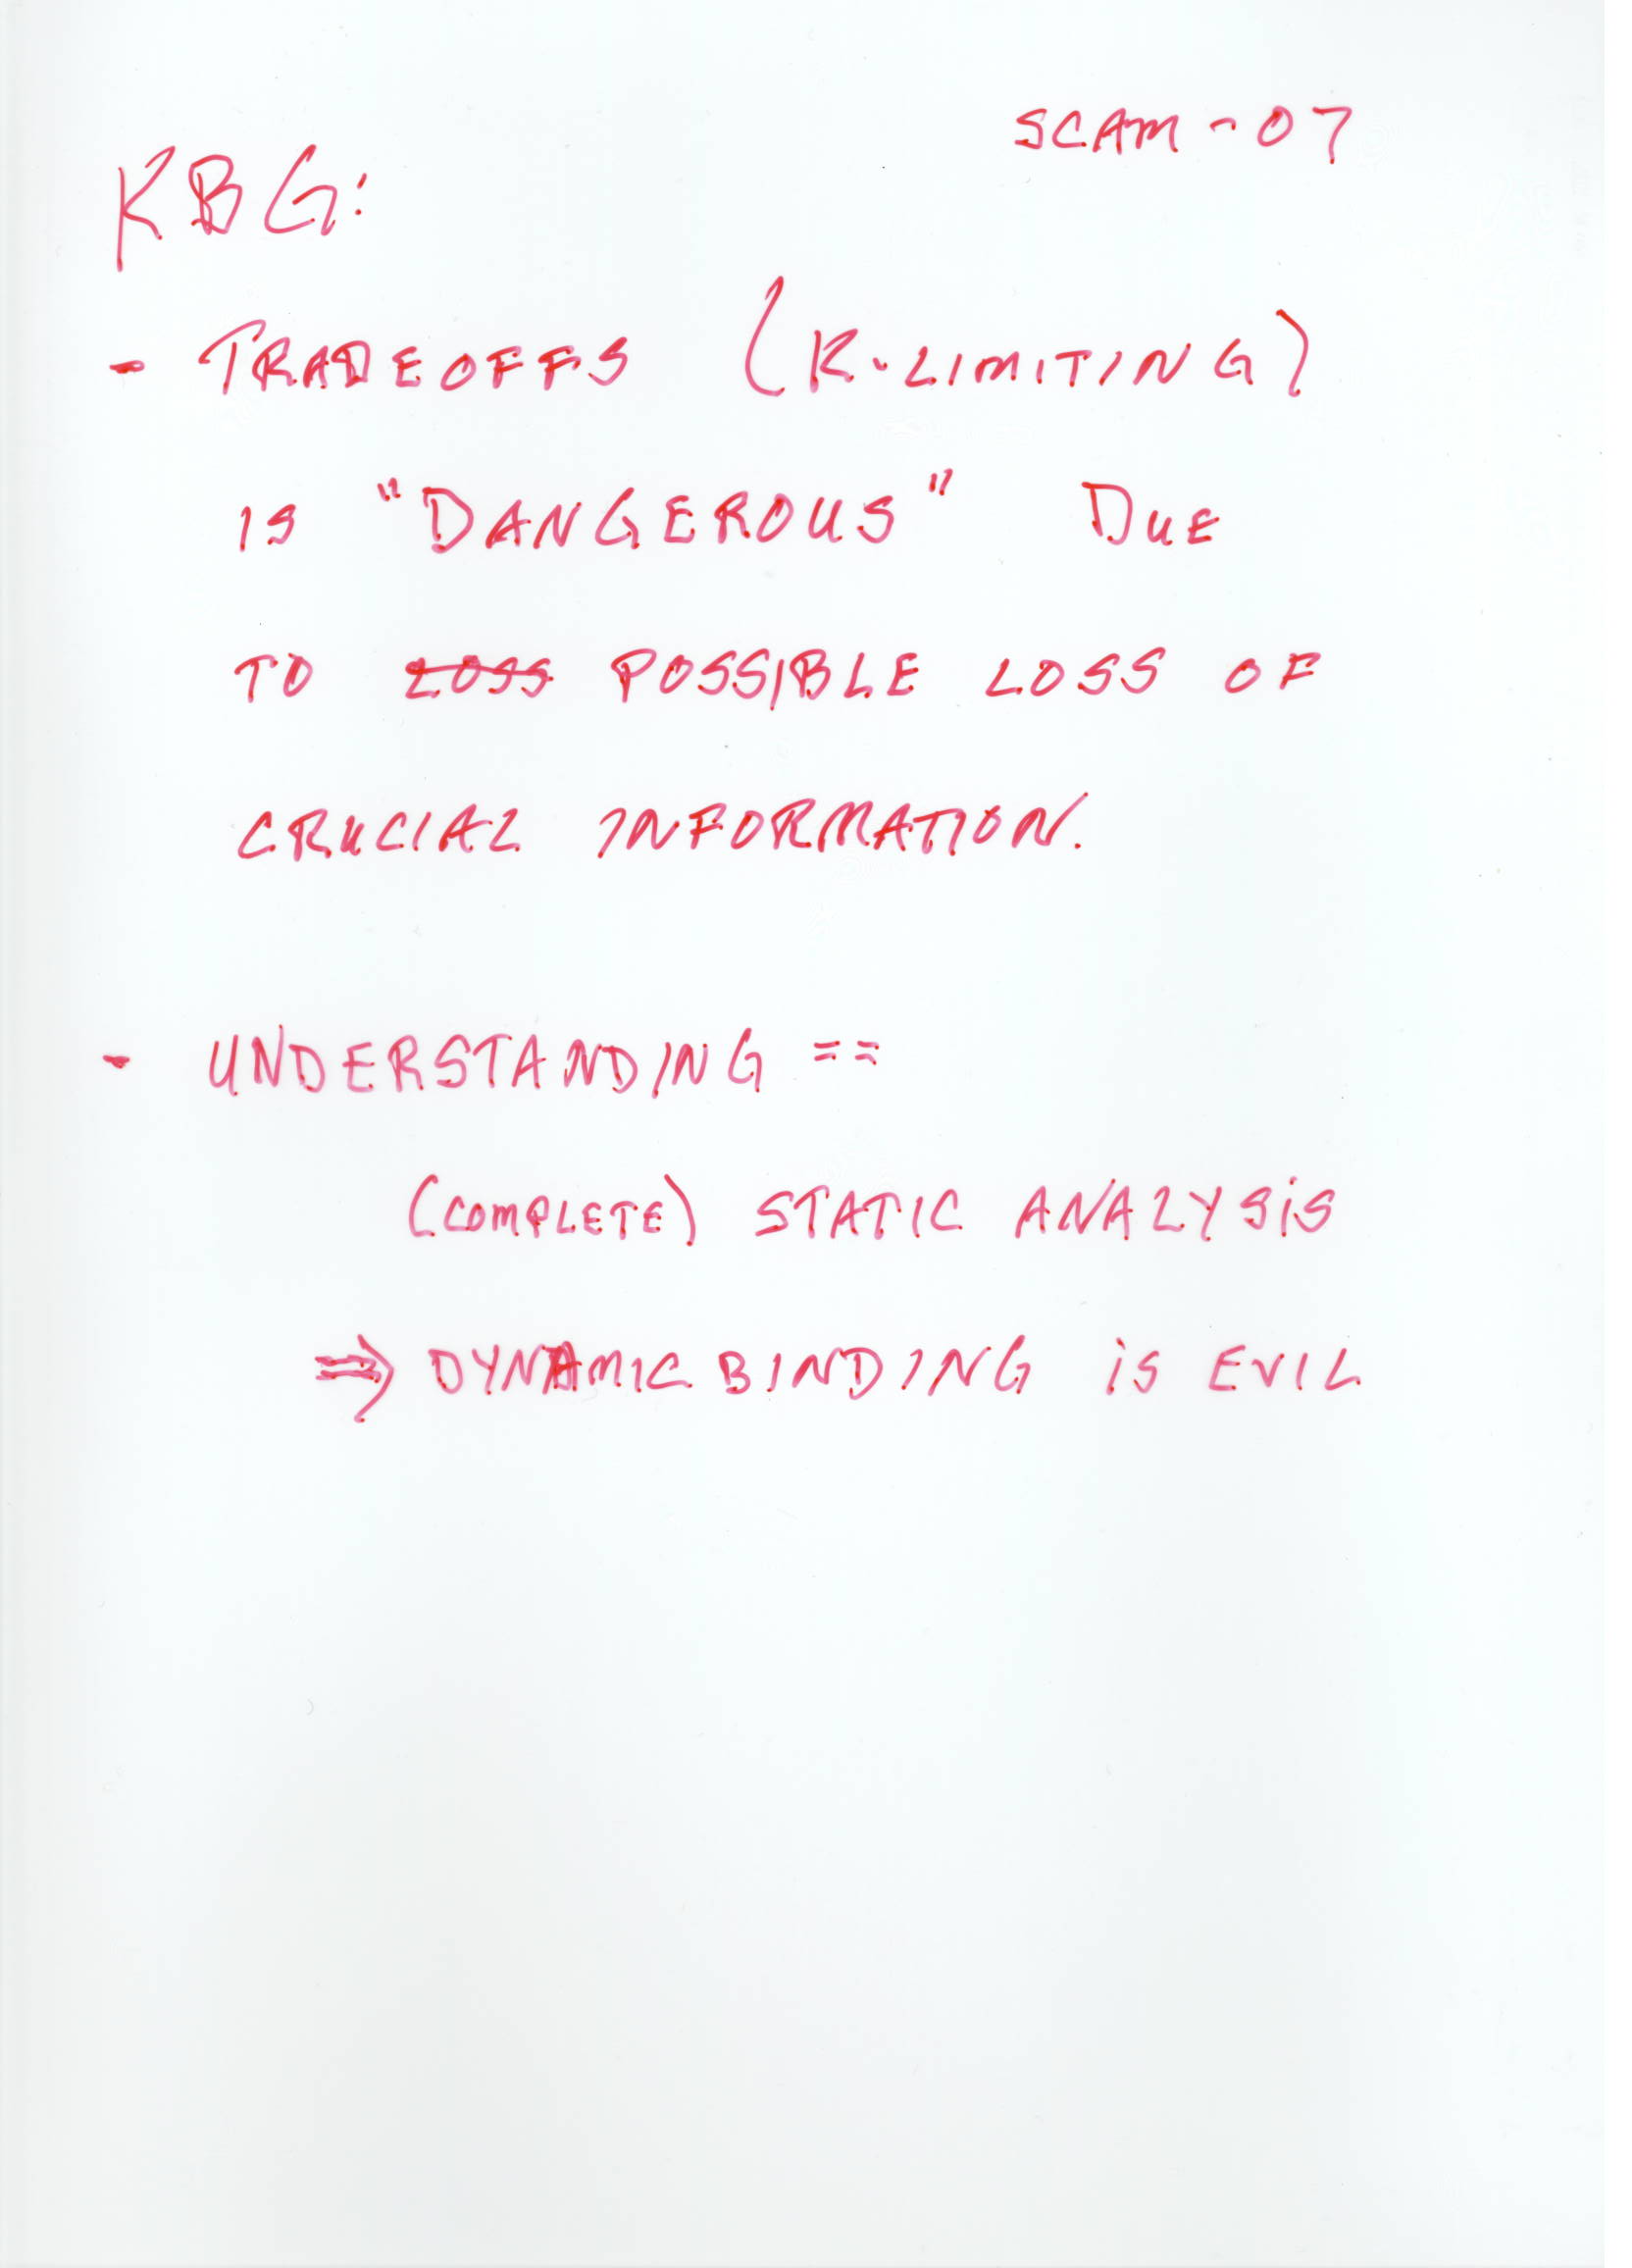 SCAM-07
KBG:
- TRADEOFFS (K-LIMITING)
IS "DANGEROUS" DUE
TO LOSS POSSIBLE LOSS OF
CRUCIAL INFORMATION.
- UNDERSTANDING ==
(COMPLETE) STATIC ANALYSiS
⇒ DYNAMIC BINDING iS EVIL